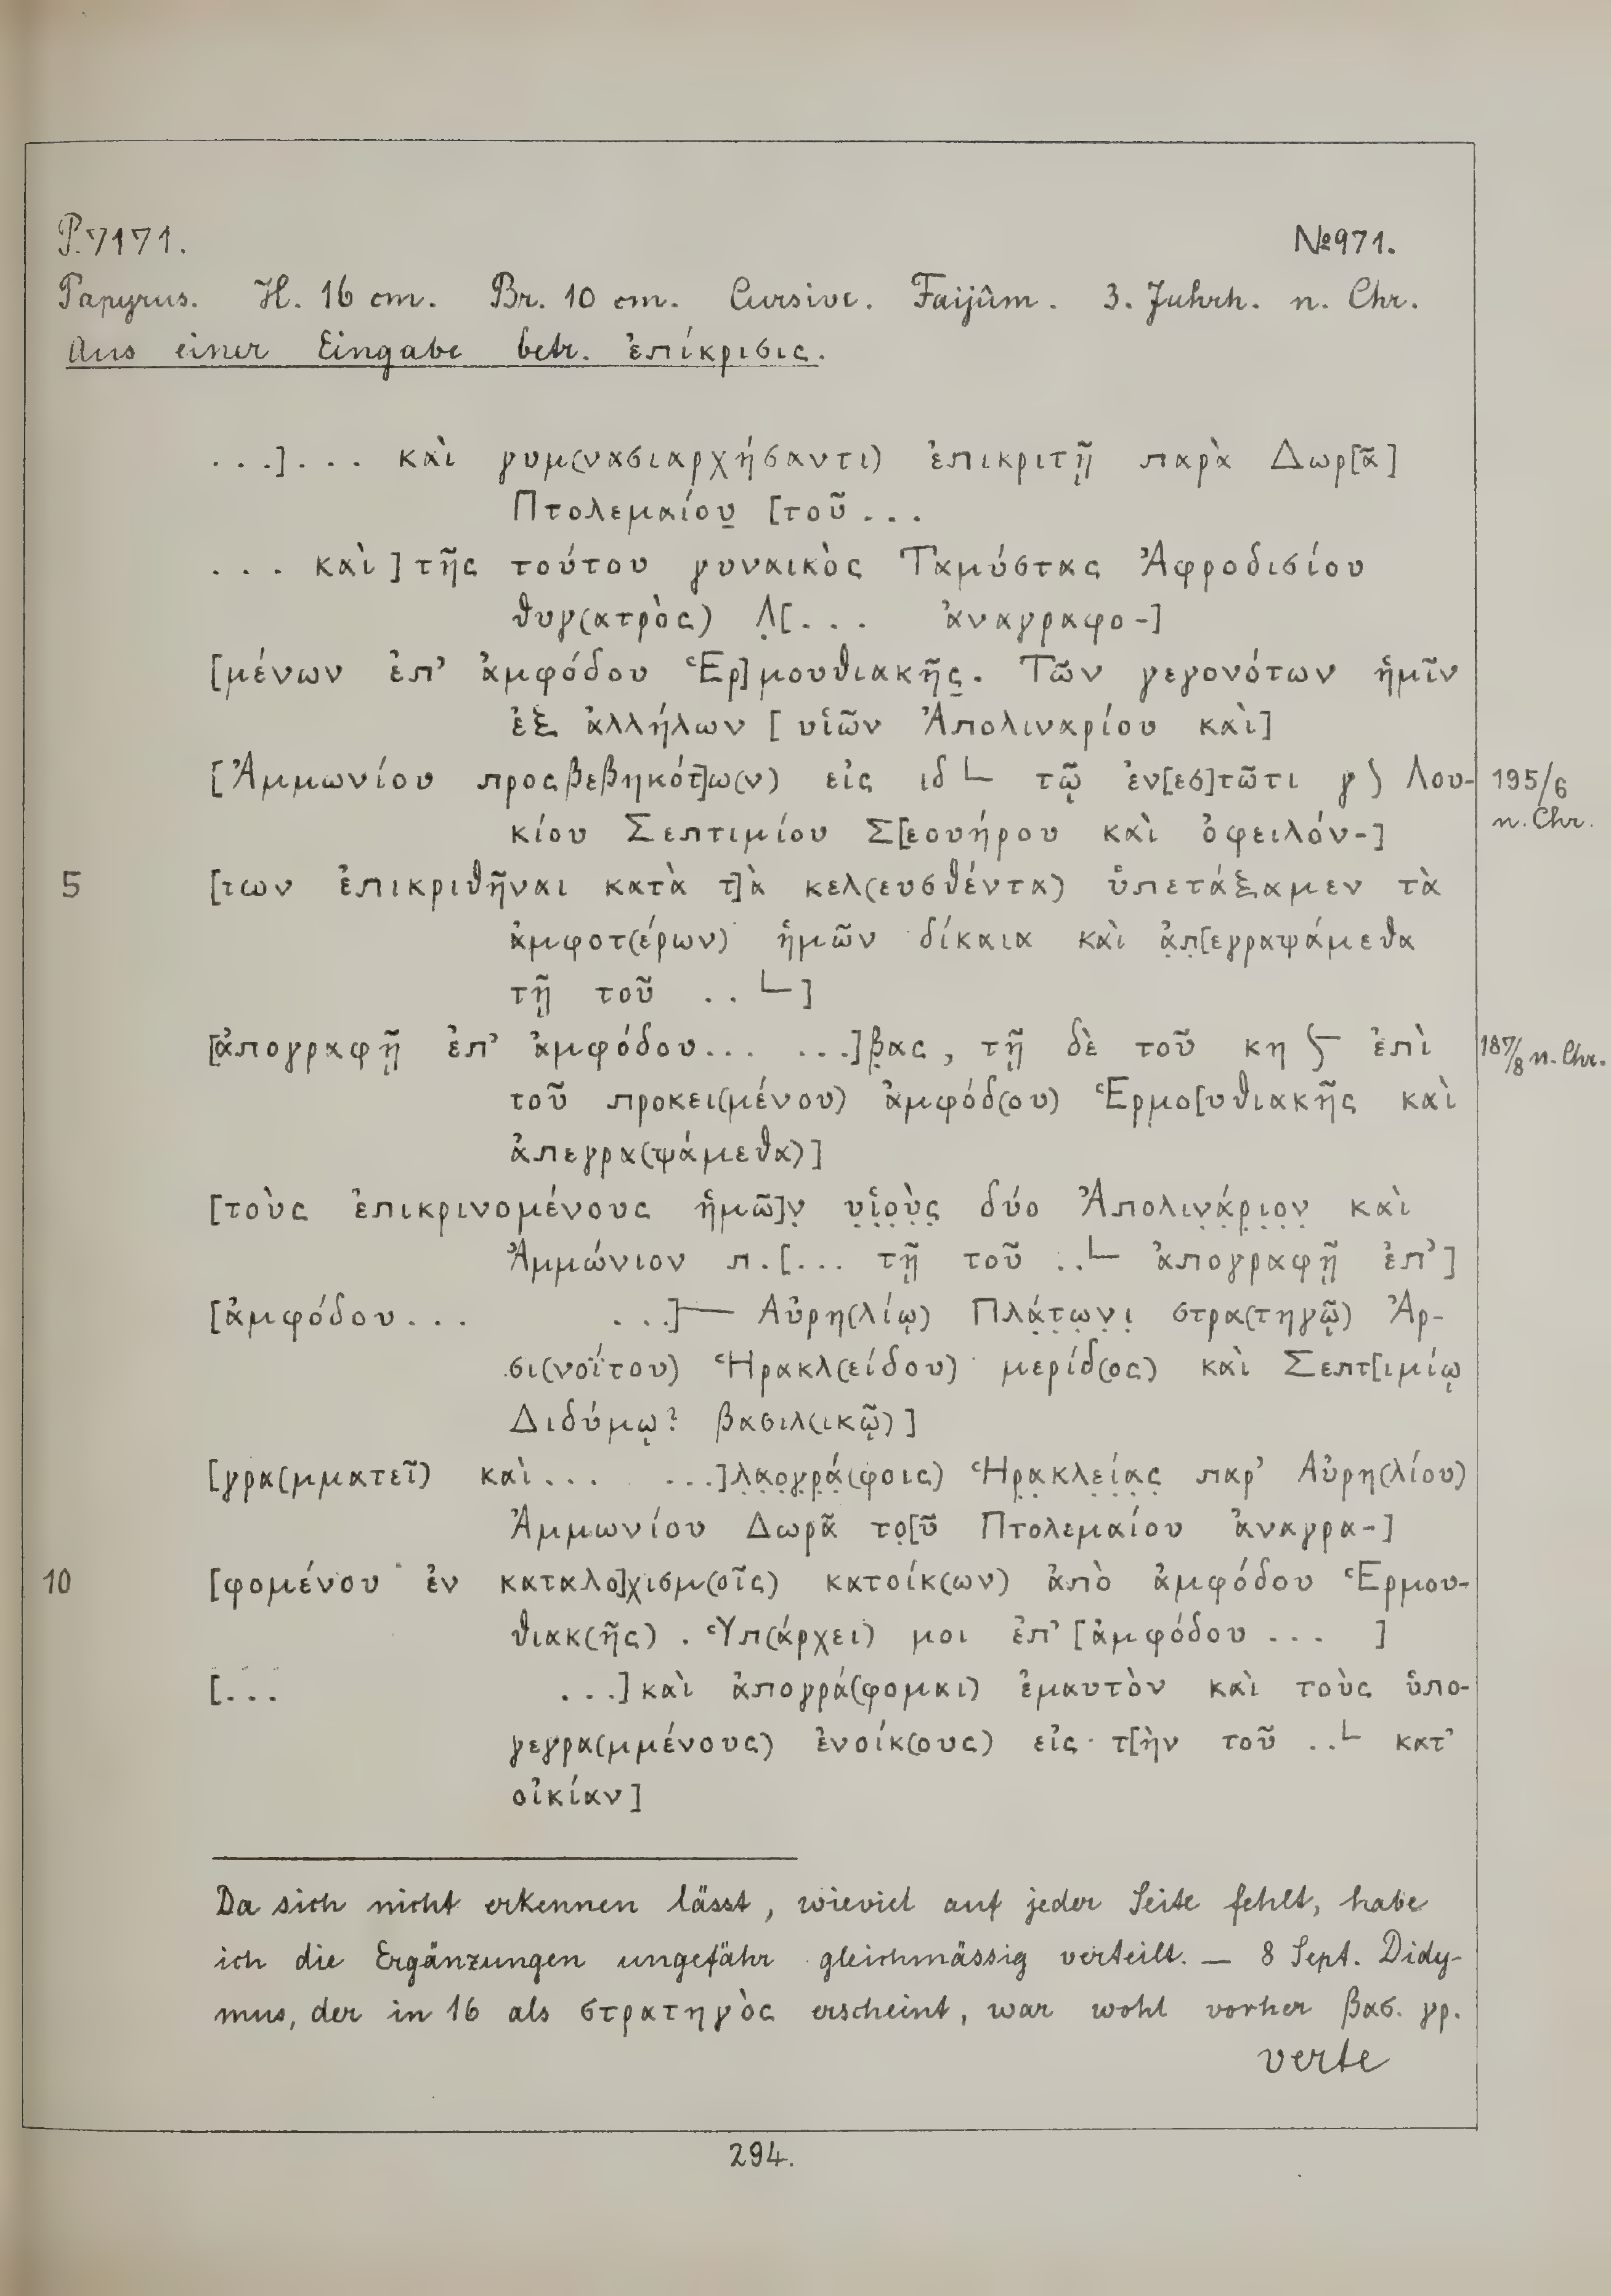 P. 7171. №971.
Papyrus. H. 16 cm. Br. 10 cm. Cursive. Faijûm. 3. Jahrh. n. Chr.
Aus einer Eingabe betr. ἐπίκρισις.
. . .] . . . καὶ γυμ(νασιαρχήσαντι) ἐπικριτῇ παρὰ Δωρ[ᾶ]
Πτολεμαίου̣ [τοῦ . . .
. . . καὶ] τῆς τούτου γυναικὸς Ταμύστας Ἀφροδισίου
θυγ(ατρὸς) Λ̣[. . . ἀναγραφο-]
[μένων ἐπ’ ἀμφόδου Ἑρ]μουθιακῆς̣. Τῶν γεγονότων ἡμῖν
ἐξ ἀλλήλων [υἱῶν Ἀπολιναρίου καὶ]
[Ἀμμωνίου προσβεβηκότ]ω(ν) εἰς ιδ L τῷ ἐν[εσ]τῶτι γ ) Λου- 195/6
κίου Σεπτιμίου Σ[εουήρου καὶ ὀφειλόν-] n. Chr.
5 [των ἐπικριθῆναι κατὰ τ]ὰ κελ(ευσθέντα) ὑπετάξαμεν τὰ
ἀμφοτ(έρων) ἡμῶν δίκαια καὶ ἀ̣π̣[εγραψάμεθα
τῇ τοῦ . . L]
[ἀπογραφῇ ἐπ’ ἀμφόδου . . . . . .]β̣ας, τῇ δὲ τοῦ κη ʃ ἐπὶ 187/8 n. Chr.
τοῦ προκει(μένου) ἀμφόδ(ου) Ἑρμο[υθιακῆς καὶ
ἀπεγρα(ψάμεθα)]
[τοὺς ἐπικρινομένους ἡμῶ]ν̣ υ̣ἱ̣ο̣ὺ̣ς̣ δύο Ἀπολιν̣ά̣ρ̣ι̣ο̣ν̣ καὶ
Ἀμμώνιον π . [. . . τῇ τοῦ . . L ἀπογραφῇ ἐπ’]
[ἀμφόδου . . . . . .]— Αὐρη(λίῳ) Πλά̣τ̣ω̣ν̣ι̣ στρα(τηγῷ) Ἀρ-
σι(νοΐτου) Ἡρακλ(είδου) μερίδ(ος) καὶ Σεπτ[ιμίῳ
Διδύμῳ? βασιλ(ικῷ)]
[γρα(μματεῖ) καὶ . . . . . .]λ̣α̣ο̣γ̣ρ̣ά̣(φοις) Ἡρ̣α̣κ̣λ̣ε̣ί̣α̣ς̣ παρ’ Αὐρη(λίου)
Ἀμμωνίου Δωρᾶ το̣[ῦ Πτολεμαίου ἀναγρα-]
10 [φομένου ἐν καταλο]χισμ(οῖς) κατοίκ(ων) ἀπὸ ἀμφόδου Ἑρμου-
θιακ(ῆς). Ὑπ(άρχει) μοι ἐπ’ [ἀμφόδου . . . ]
[. . . . . .] καὶ ἀπογρά(φομαι) ἐμαυτὸν καὶ τοὺς ὑπο-
γεγρα(μμένους) ἐνοίκ(ους) εἰς τ[ὴν τοῦ . . L κατ’
οἰκίαν]
Da sich nicht erkennen lässt, wieviel auf jeder Seite fehlt, habe
ich die Ergänzungen ungefähr gleichmässig verteilt. — 8 Sept. Didy-
mus, der in 16 als στρατηγὸς erscheint, war wohl vorher βασ. γρ.
verte
294.